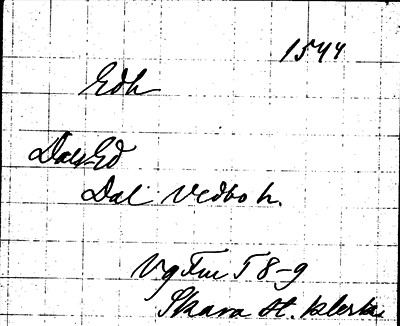 1544
Edh
Dals-Ed
Dal Vedbo h.
Vg Fm T 8-9
Skara st. klerks